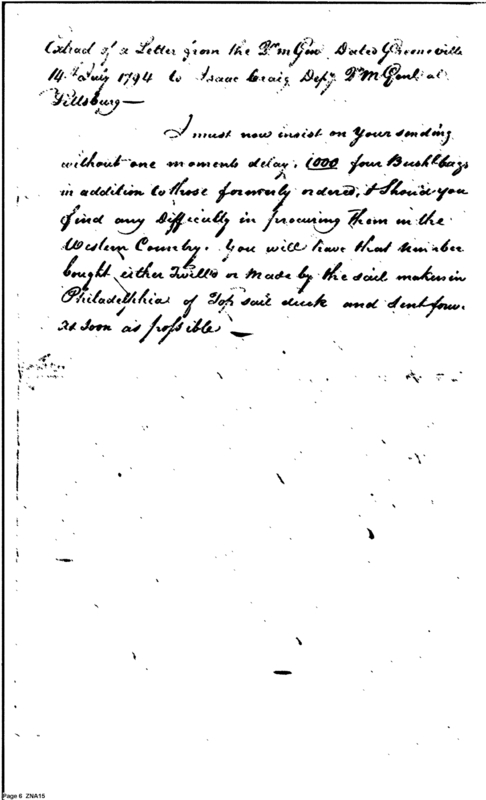 Extract of a Letter from the Qr m Genl Dated Greeneville
14th July 1794 to Isaac Craig Depy Qr M Genl at
Pittsburg—
I must now insist on your sending
without one moments delay, 1000 four Bushl bags
in addition to those formerly ordered, & Should you
find any Difficulty in procuring Them in the
Western Country. you will have that number
bought either Twill'd or made by the sail makers in
Philadelphia of Top sail duck and sent forw.
as soon as possible —
Page 6 ZNA15